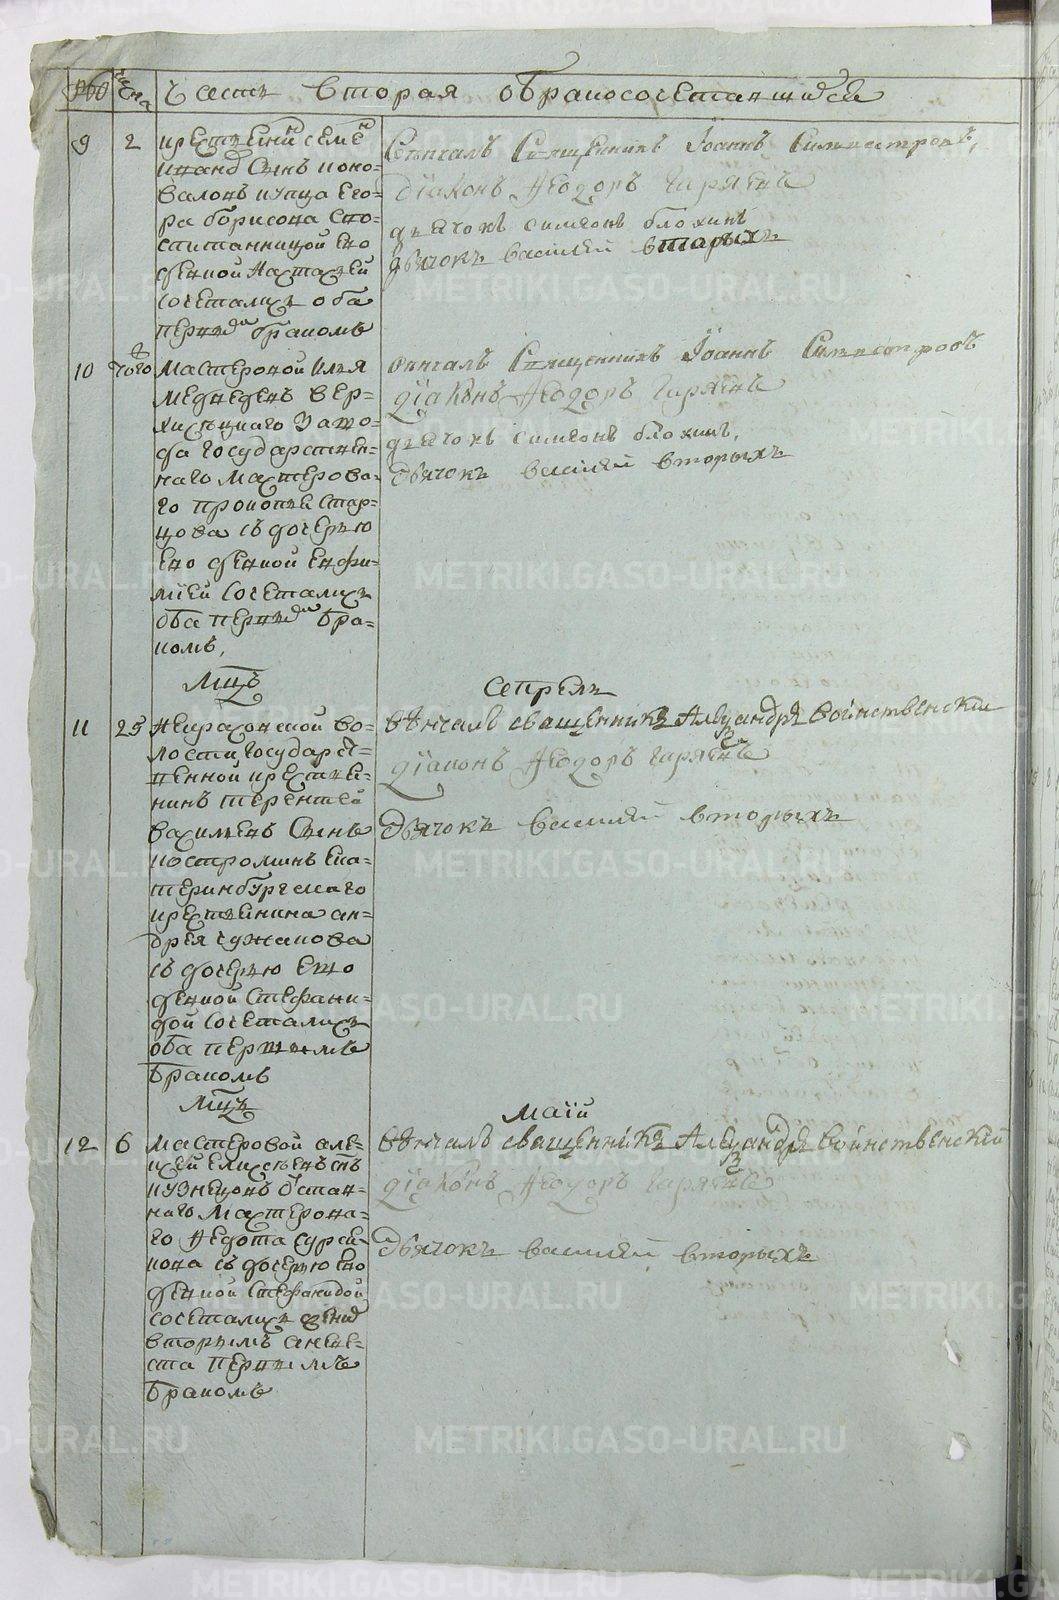 часть вторая о бракосочетавшихся
9 2 крестьянинъ семенъ
ивановъ сынъ коно-
валовъ купца его-
ра борисова спо-
спитанницой его
девкой настасьей
сочетались оба
первымъ бракомъ
Венчалъ Священникъ Іоаннъ Сильвестровъ,
Діаконъ Ѳеодоръ
дьячокъ симеонъ блохинъ
дьячокъ василей вторыхъ
10 того
мастеровой илья
медведевъ вер-
хисецкаго заво-
да государствен-
наго мастерова-
го прокопья стар-
цова съ дочерью
его девкой евфи-
міей сочетались
оба первымъ бра-
комъ,
венчалъ Священникъ Іоаннъ Сильвестровъ
діаконъ Ѳеодоръ
дьячокъ симеонъ блохинъ,
дьячокъ василей вторыхъ
Мцъ апрель
11 25
волости государст-
венной крестья-
нинъ терентей
сынъ
костроминъ ека-
теринбургскаго
крестьянина ан-
дрея чужакова
съ дочерью ево
девкой стефани-
дой сочетались
оба первымъ
бракомъ
вѣнчалъ священникъ Александръ воинственскій
діаконъ Ѳеодоръ
дьячокъ василей вторыхъ
Мцъ маій
12 6 мастеровой але-
ксей елисеевъ сынъ
кузнецовъ отстав-
наго мастерова-
го Ѳедота
съ дочерью ево
девкой стефанидой
сочетались женихъ
вторымъ а неве-
ста первымъ
бракомъ
вѣнчалъ священникъ Александръ воинственскій
діаконъ Ѳеодоръ
дьячокъ василей вторыхъ
METRIKI.GASO-URAL.RU